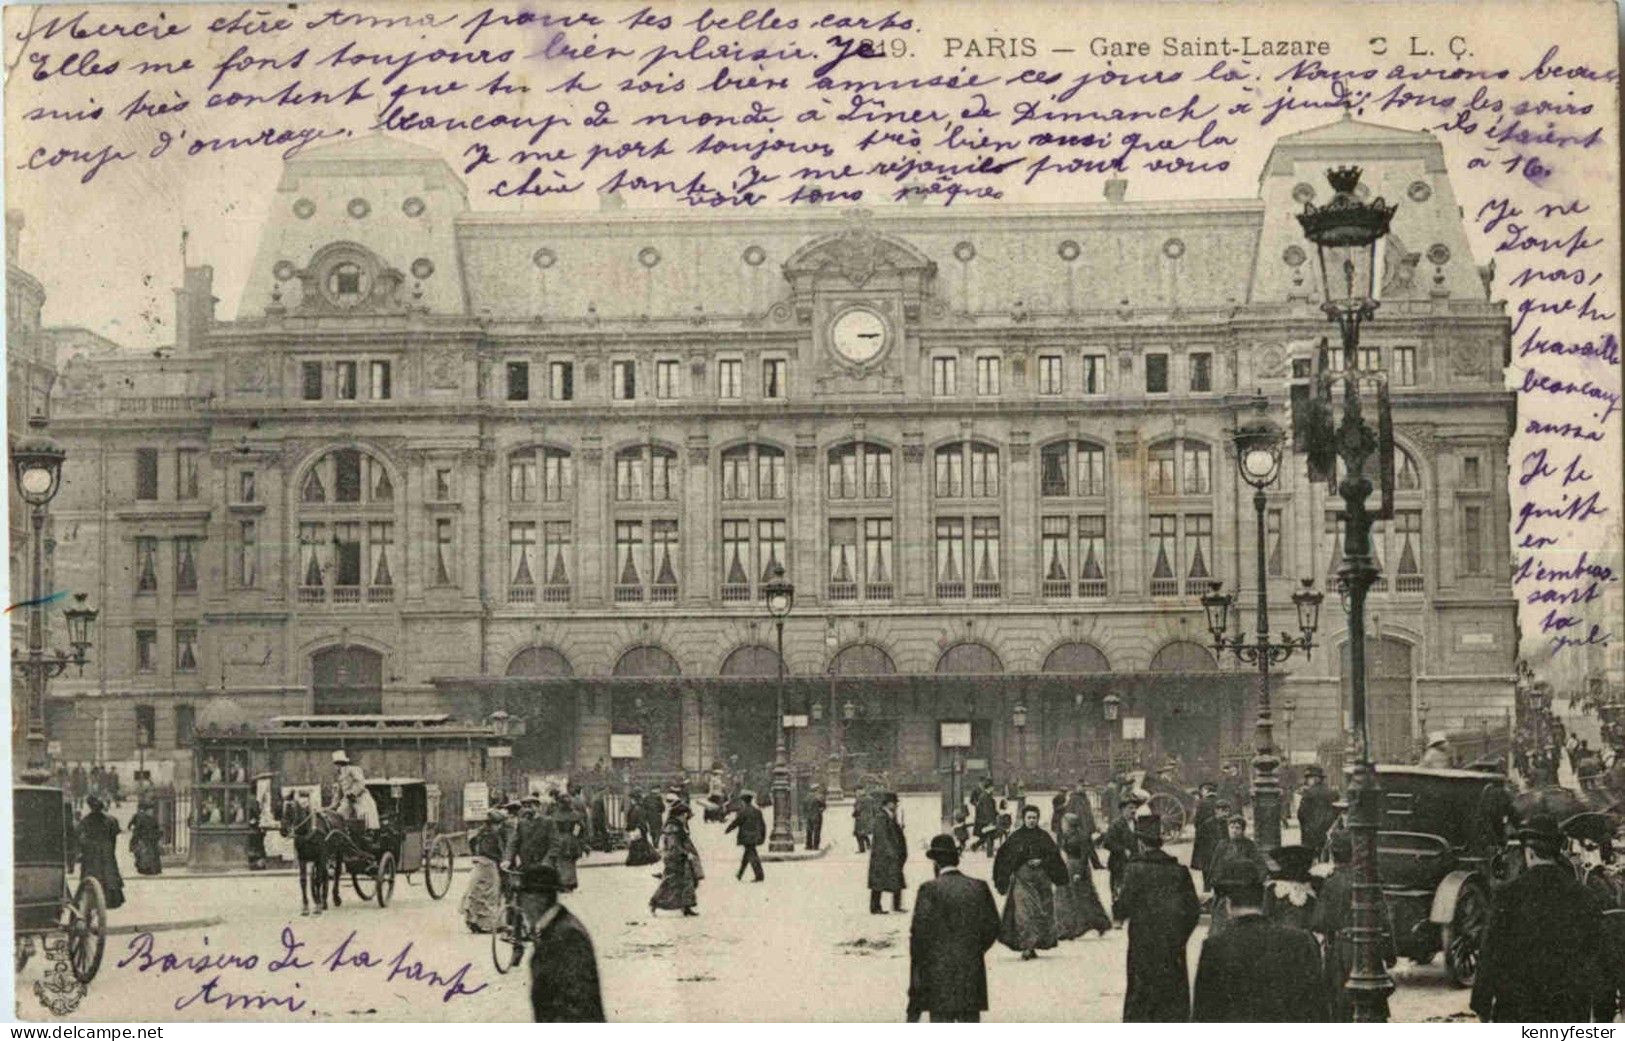 Mercie chère Anna pour tes belles carts.
819. PARIS — Gare Saint-Lazare C L. C.
Elles me font toujours bien plaisir. Je
suis très content que tu te sois bien amusée ces jours là. Nous avions beau
coup d'ouvrage, beaucoup de monde à dîner, de Dimanch à jeudi; tous les soirs
ils étaient
à 16.
Je me port toujours très bien ausi que la
chère tante. Je me réjouis pour vous
voir tous pâques
Je ne
doute
pas,
que tu
travaille
beaucoup
aussi
Je te
quitte
en
t'embras-
sant
ta
Baisers de ta tante
Anni.
kennyfester